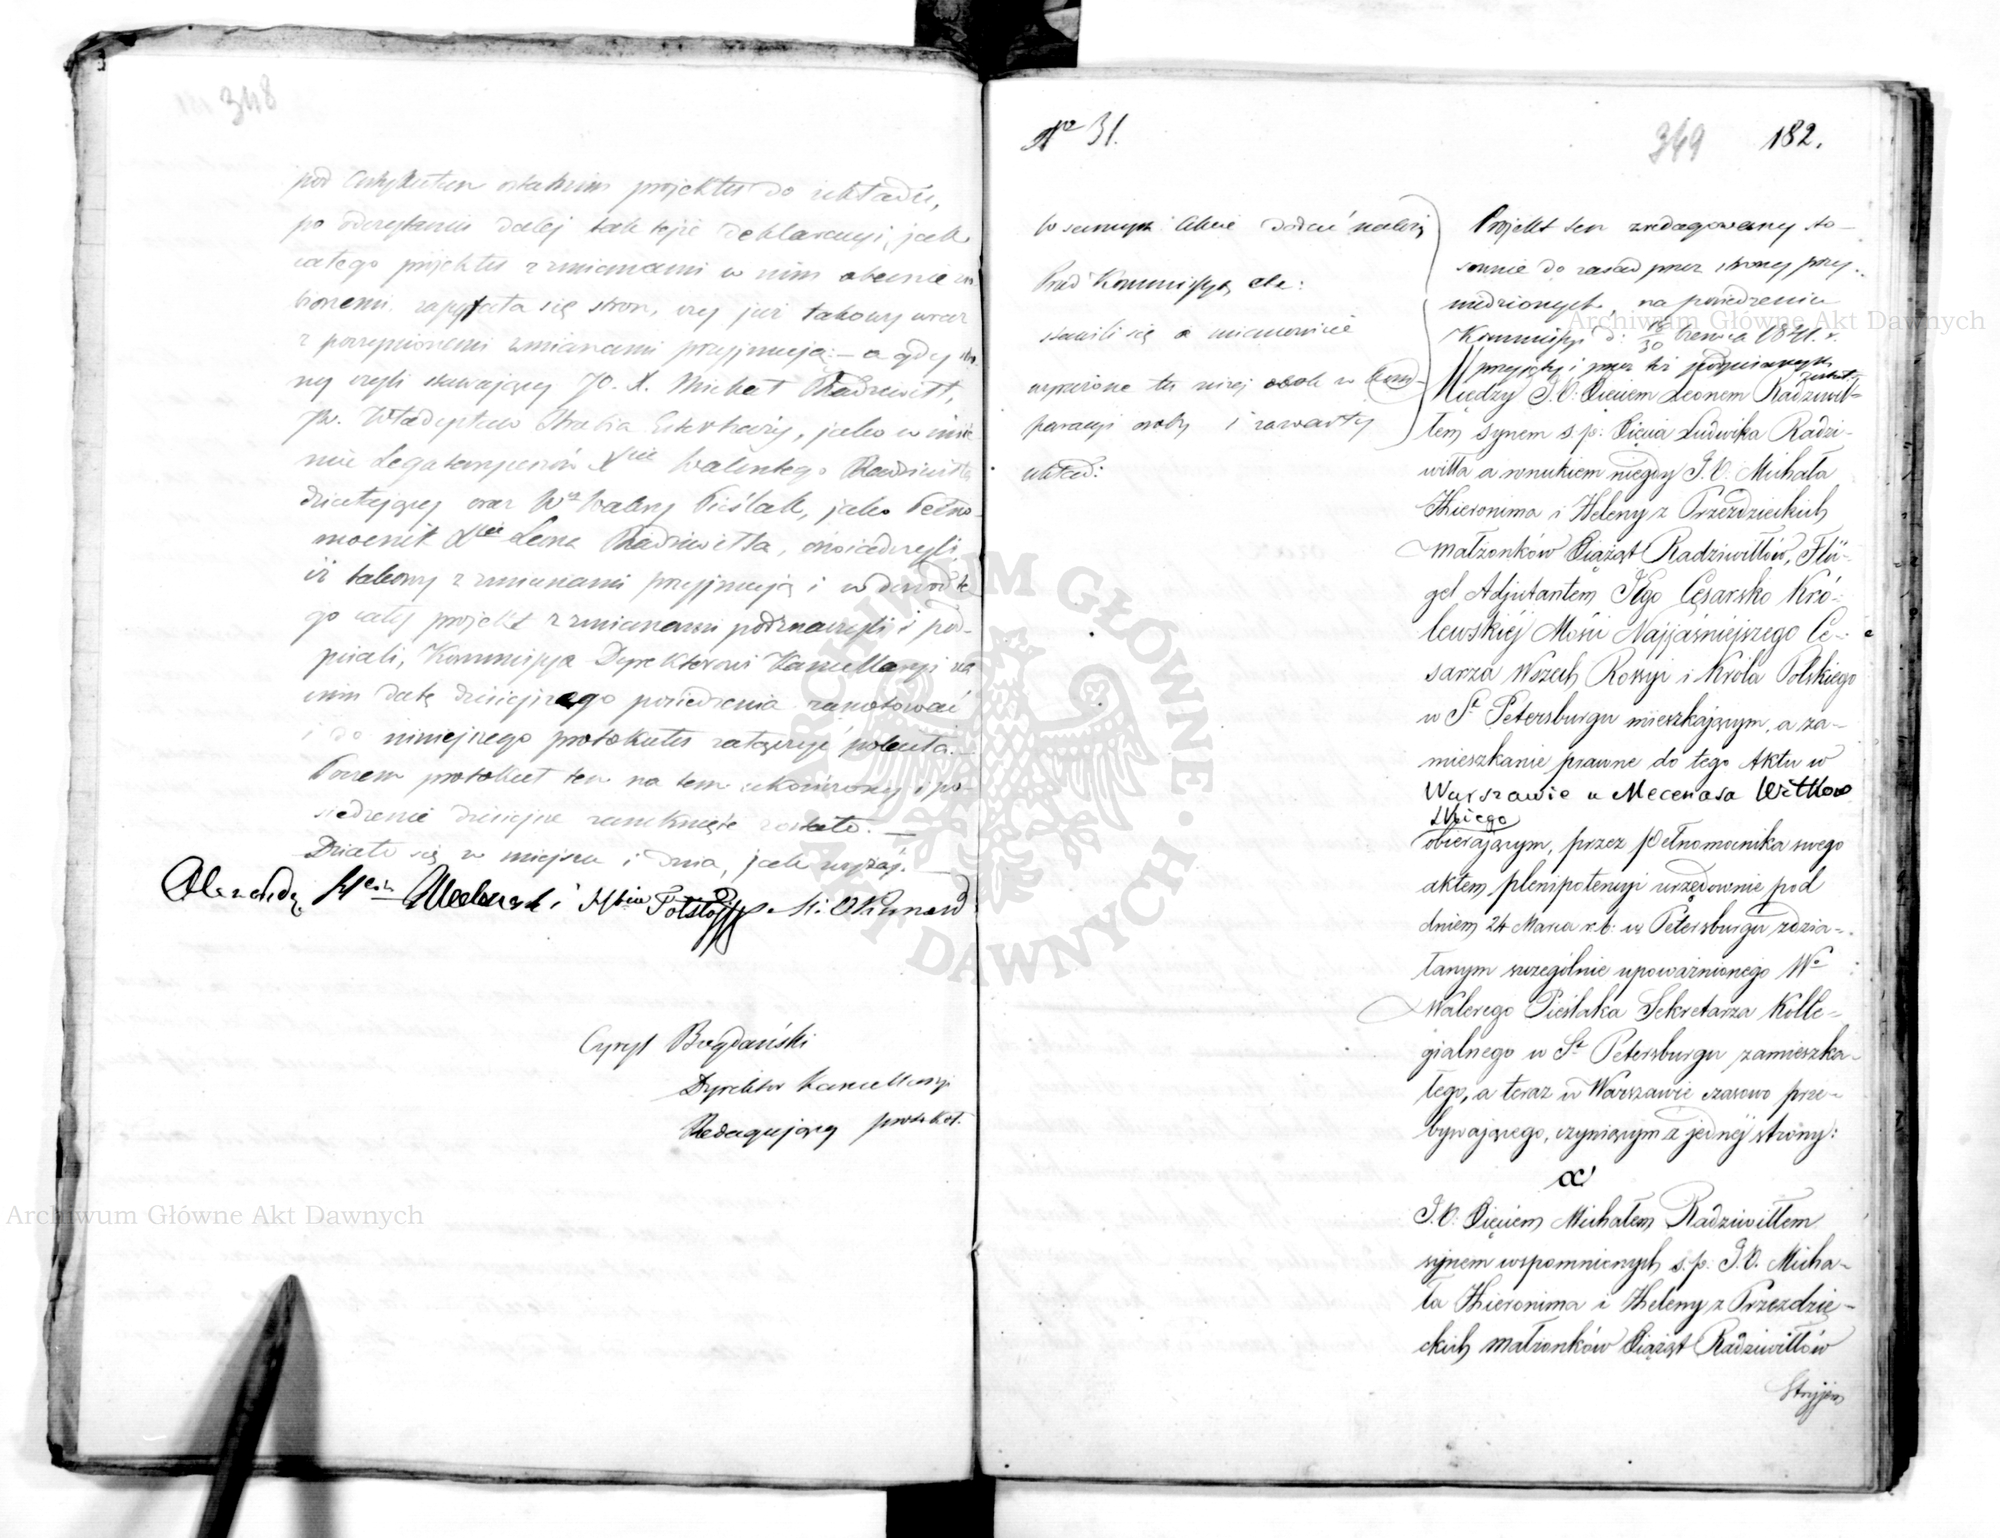 348
pod Artykułem ostatnim projektu do układu,
po odczytaniu dalej tak tejże deklaracyi, jak
całego projektu z zmianami w nim obecnie
zapytała się stron, czy już takowy wraz
z poczynionemi zmianami przyjmują: — a gdy
ny czyli stawający JO. X. Michał Radziwiłł,
JW. Władysław Hrabia Esterhazy, jako w imie
niu Legataryuszów Xcia Walentego Radziwiłła
działający oraz Wny Walery Pieślak, jako Pełno
mocnik Xcia Leona Radziwiłła, oświadczyli,
iż takowy z zmianami przyjmują i w dowód te
go cały projekt z zmianami podznaczyli i pod-
pisali, Kommissya Dyrektorowi Kancellaryi na
nim datę dzisiejszego posiedzenia zanotować
i do niniejszego protokułu załączyć poleciła. —
Poczem protokuł ten na tem ukończony i po-
siedzenie dzisiejsze zamknięte zostało. —
Działo się w miejscu i dnia, jak wyżej. —
Cyryl Bogdański
Dyrektor Kancellaryi
Redagujący protokół.
No 31.
349 182.
w samym Akcie dodać należy
Przed Kommissyą etc:
stawili się a mianowicie
wyrażone tu niżej obok w Kom-
paracyi osoby i zawarły
układ:
Projekt ten zredagowany sto-
sownie do zasad przez strony przy-
na posiedzeniu
Kommissyi d: 18/30 Czerwca 1841. r.
przyjęty i przez też podpisanym
został
Między J.O. Xięciem Leonem Radziwił-
łem synem ś.p. Xięcia Ludwika Radzi-
wiłła a wnukiem niegdy J.O. Michała
Hieronima i Heleny z Przezdzieckich
małżonków Xiążąt Radziwiłłów, Flü-
gel Adjutantem JEgo Cesarsko Kró-
lewskiéj Mości Najjaśniejszego Ce-
sarza Wszech Rossyi i Króla Polskiego
w St Petersburgu mieszkającym, a za-
mieszkanie prawne do tego Aktu w
Warszawie u Mecenasa Witkow
skiego
obierającym, przez Pełnomocnika swego
aktem plenipotencyi urzędownie pod
dniem 24 Marca r.b: w Petersburgu zdzia-
łanym szczególnie upoważnionego Wo
Walerego Pieślaka Sekretarza Kolle-
gialnego w St Petersburgu zamieszka-
łego, a teraz w Warszawie czasowo prze-
bywającego, czyniącym z jednéj strony:
a
J.O. Xięciem Michałem Radziwiłłem
synem wspomnionych ś.p. J.O. Micha-
ła Hieronima i Heleny z Przezdzie-
ckich małżonków Xiążąt Radziwiłłów
Stryjem
Archiwum Główne Akt Dawnych
Archiwum Główne Akt Dawnych
ARCHIWUM GŁÓWNE AKT DAWNYCH